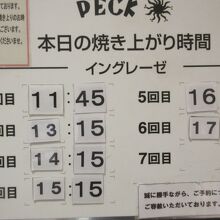 ております。
PECK
本日の焼き上がり時間
イングレーゼ
回目 11:45 5回目 16
回目 13:15 6回目 17
回目 14:15 7回目
回目 15:15
誠に勝手ながら、ご予約に
ご容赦いただいております